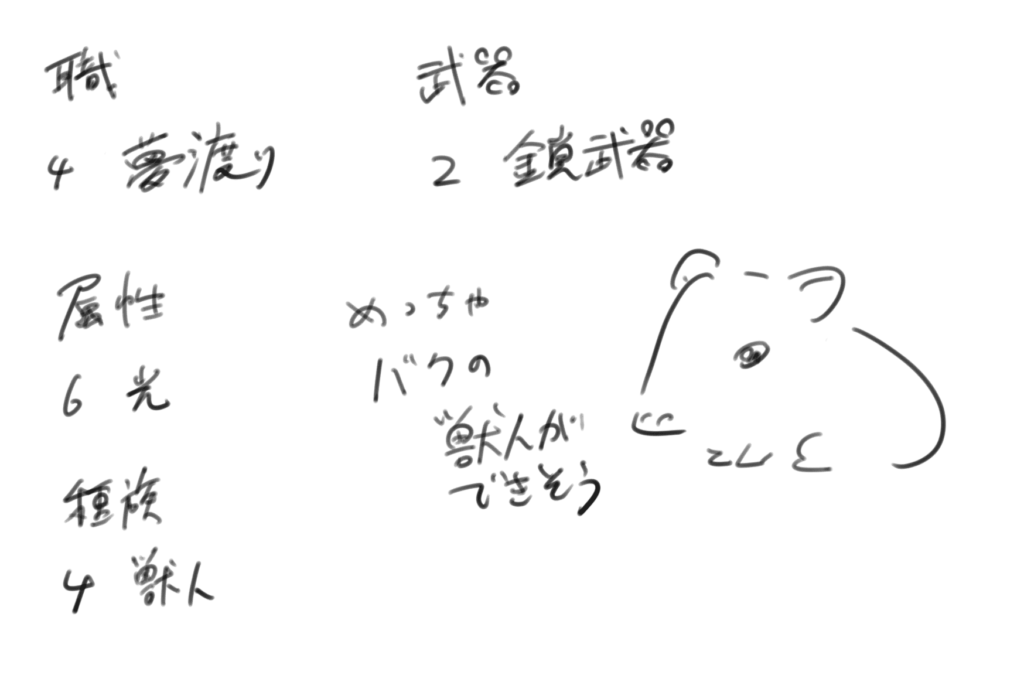 職
4 夢渡り
武器
2 鎖武器
属性
6 光
種族
4 獣人
めっちゃ
バクの
獣人が
できそう